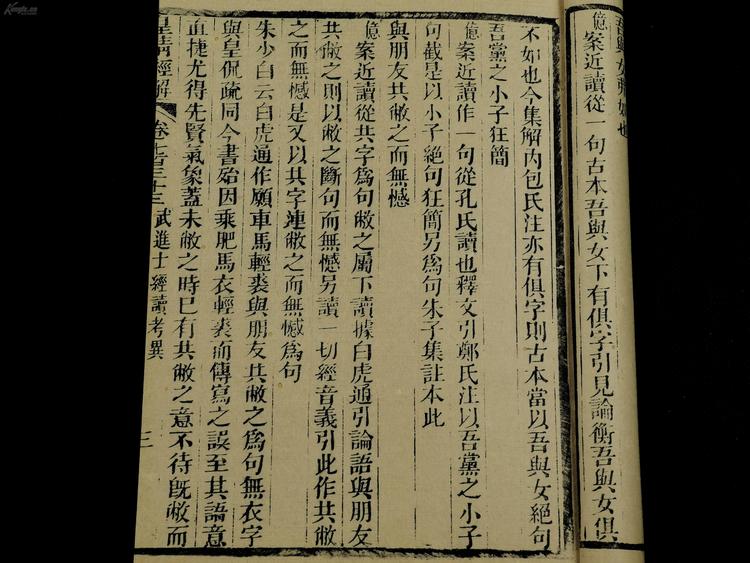 吾與女弗如也
億案近讀從一句古本吾與女下有俱字引見論衡吾與女俱
不如也今集解內包氏注亦有俱字則古本當以吾與女絕句
吾黨之小子狂簡
億案近讀作一句從孔氏讀也釋文引鄭氏注以吾黨之小子
句截是以小子絕句狂簡另為句朱子集註本此
與朋友共敝之而無憾
億案近讀從共字為句敝之屬下讀據白虎通引論語與朋友
共敝之則以敝之斷句而無憾另讀一切經音義引此作共敝
之而無憾是又以共字連敝之而無憾為句
朱少白云白虎通作願車馬輕裘與朋友共敝之為句無衣字
與皇侃疏同今書殆因乘肥馬衣輕裘而傳寫之誤至其語意
直捷尤得先賢氣象蓋未敝之時已有共敝之意不待既敝而
皇清經解
卷七百三十三
武進士經讀考異
三